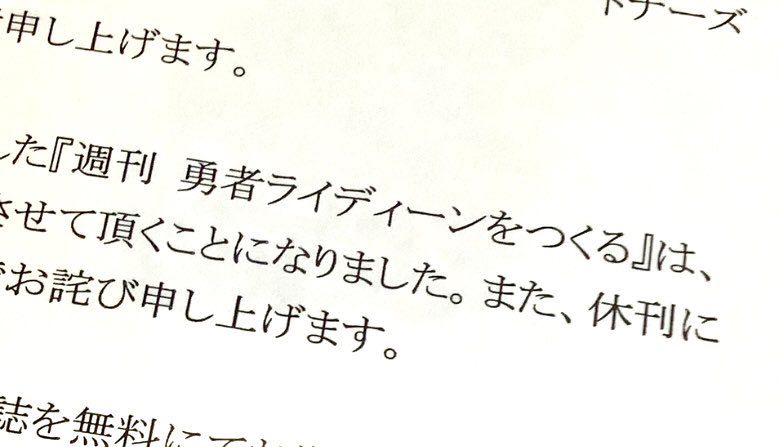 トナーズ
申し上げます。
した『週刊 勇者ライディーンをつくる』は、
させて頂くことになりました。また、休刊に
お詫び申し上げます。
誌を無料にて